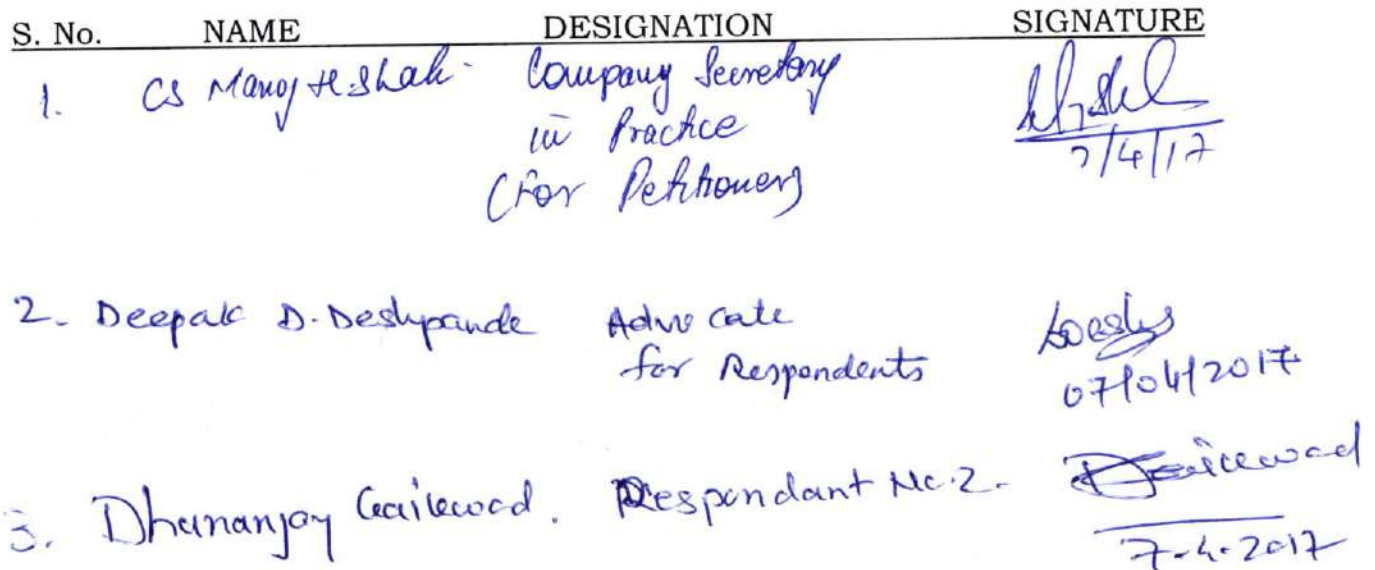 S. No. NAME DESIGNATION SIGNATURE
1. CS Manoj H. Shah Company Secretary
in Practice
(For Petitioners)
7/4/17
2. Deepak D. Deshpande Advocate
for Respondents
07/04/2017
3. Dhananjay Gaikwad. Respondant No. 2.
7-4-2017